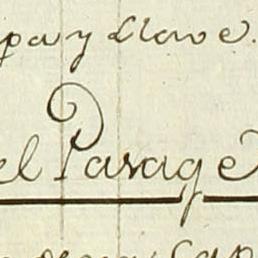 pa y Llave.
el Pasage